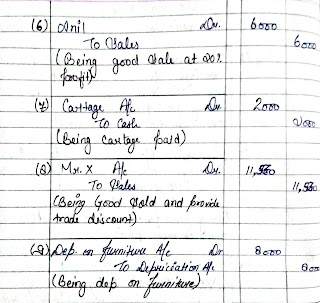 (6) Anil Dr. 6000
To Sales 6000
(Being good sale at 20%
profit)
(7) Cartage A/c Dr. 2000
To Cash 2000
(Being cartage paid)
(8) Mr. X A/c Dr. 11,560
To Sales 11,560
(Being Good Sold and provide
trade discount)
(9) Dep. on furniture A/c Dr 8000
To Depriciation A/c
(Being dep on furniture)